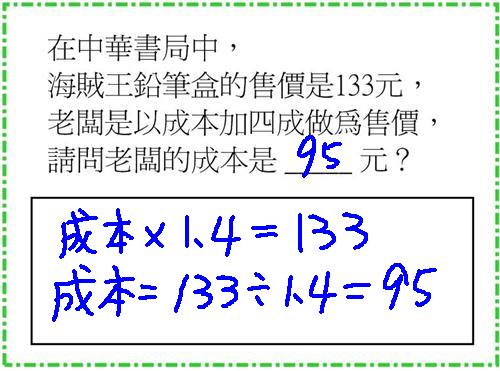 在中華書局中，
海賊王鉛筆盒的售價是133元，
老闆是以成本加四成做為售價，
請問老闆的成本是 95 元？
成本×1.4=133
成本=133÷1.4=95